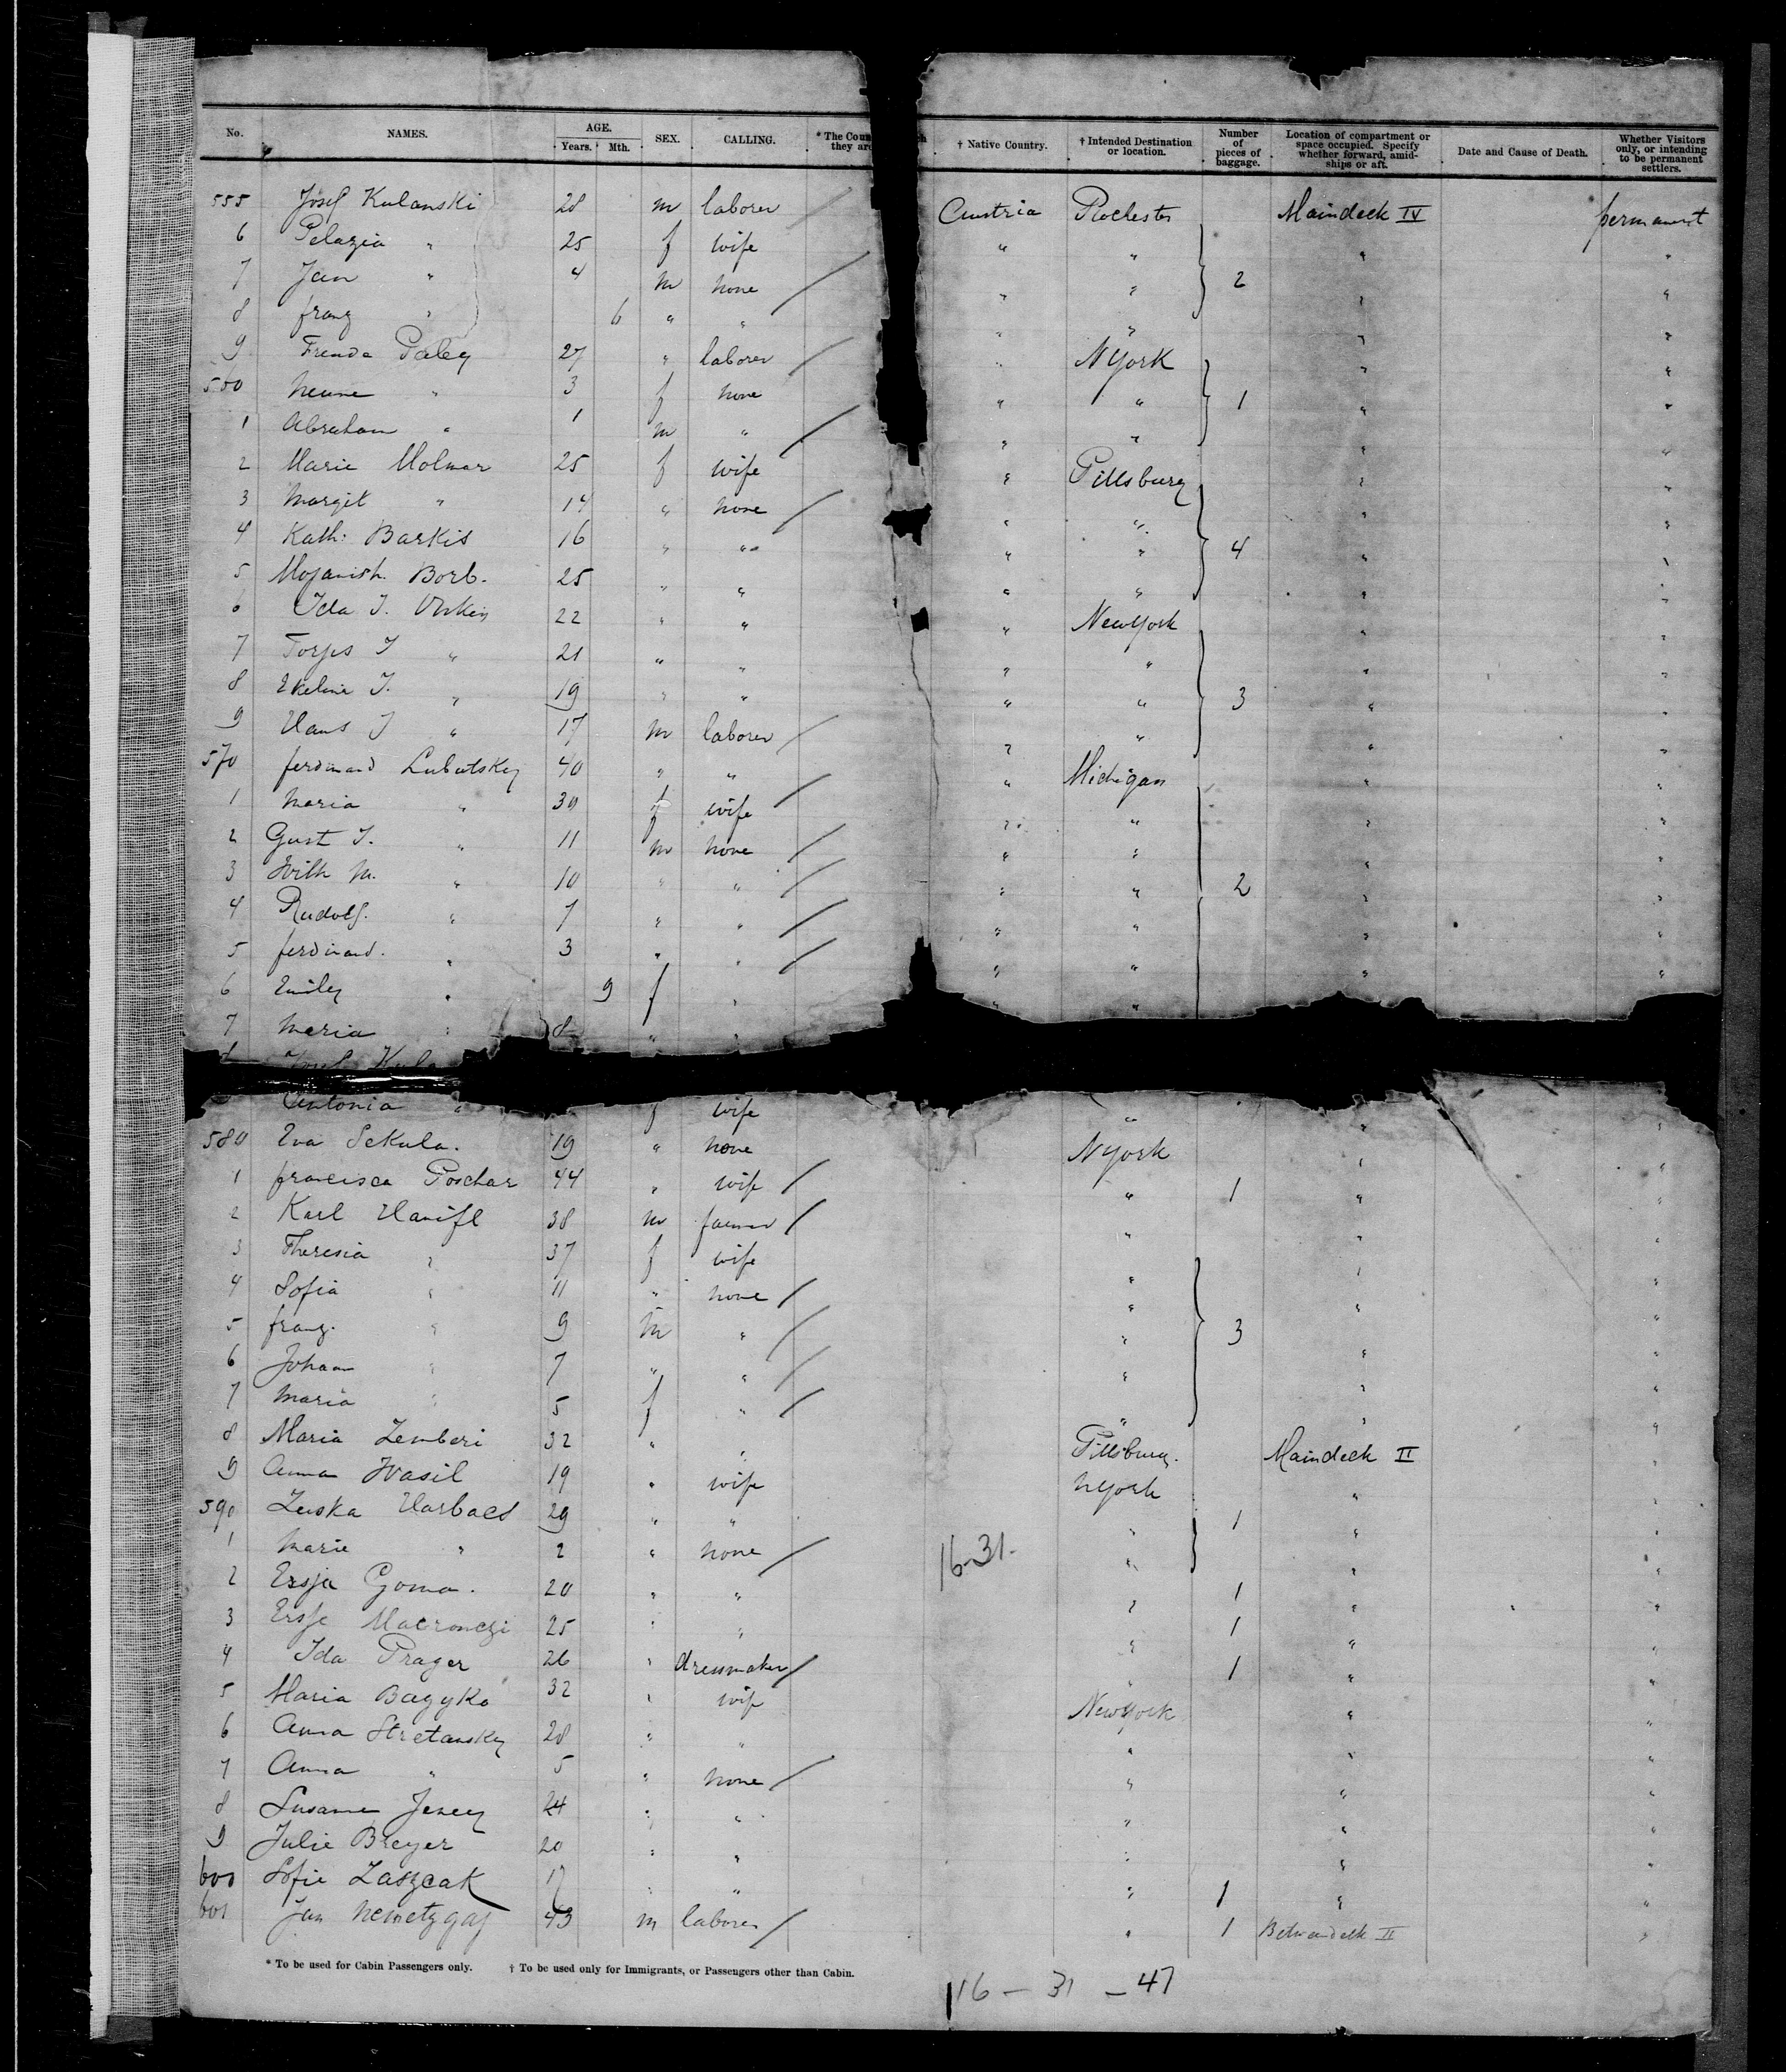 No. NAMES. AGE. Years. Mth. SEX. CALLING. * The Coun they are † Native Country. † Intended Destination or location. Number of pieces of baggage. Location of compartment or space occupied. Specify whether forward, amidships or aft. Date and Cause of Death. Whether Visitors only, or intending to be permanent settlers.
555 Josef Kulanski 28 m laborer Austria Rochester Maindeck IV permanent
6 Pelazia " 25 f wife " " " "
7 Jan " 4 m none " " 2 " "
8 franz " 6 " " " " " "
9 Paley 27 " laborer " NYork " "
560 " 3 f none " " 1 " "
1 Abraham " 1 m " " " " "
2 Marie Molnar 25 f wife " Pittsburg " "
3 Margit " 14 " none " " " "
4 Kath. Barkis 16 " " " " 4 " "
5 Borb. 25 " " " " " "
6 Ida J. 22 " " " NewYork " "
7 J " 21 " " " " " "
8 J. " 19 " " " " 3 " "
9 Hans J " 17 m laborer " " " "
570 ferdinand Lubutsky 40 " " " Michigan " "
1 Maria " 30 f wife " " " "
2 Gust J. " 11 m none " " " "
3 Wilh M. " 10 " " " " 2 " "
4 Rudolf. " 7 " " " " " "
5 ferdinand. " 3 " " " " " "
6 Emiley " 9 f " " "
7 Maria " 8 " "
8 Josef Kula
Antonia " f wife " " "
580 Eva Sekula. 19 " none NYork " "
1 francisca Poschar 44 " wife " 1 " "
2 Karl Hanifl 38 m farmer " " "
3 Theresia " 37 f wife " " "
4 Sofia " 11 " none " " "
5 franz. " 9 m " " 3 "
6 Johann " 7 " " " " "
7 Maria " 5 f " " " "
8 Maria Zemberi 32 " " Pittsburg. Maindeck II "
9 Anna Wasil 19 " wife NYork " "
590 Zuska Harbacs 29 " " " 1 " "
1 Marie " 2 " none 16-31- " " "
2 Ersja Goma. 20 " " " 1 " "
3 25 " " " 1 " "
4 Ida Prager 26 " dressmaker " 1 " "
5 Maria Bagyko 32 " wife NewYork " "
6 Anna Stretansky 28 " " " " "
7 Anna " 5 " none " " "
8 Susanne 24 " " " " "
9 Julie Breyer 20 " " " " "
600 Sofie Laszcak 17 " " " 1 " "
601 Jan 43 m laborer " 1 Betweendeck II "
* To be used for Cabin Passengers only. † To be used only for Immigrants, or Passengers other than Cabin.
16 – 31 – 47